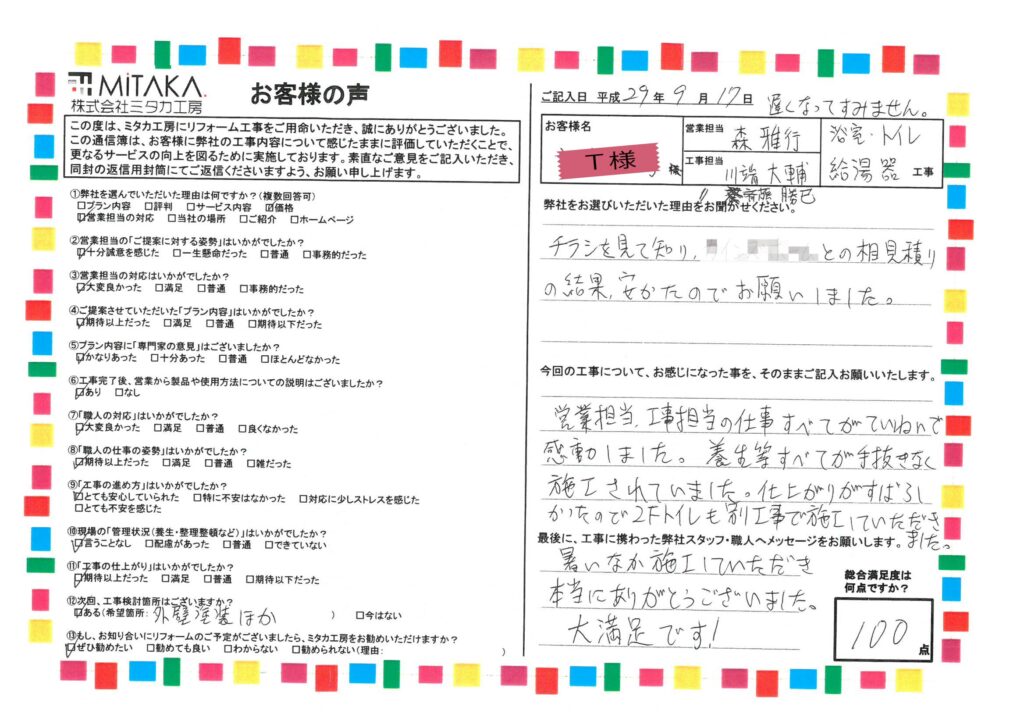 MiTAKA.
株式会社ミタカ工房
お客様の声
この度は、ミタカ工房にリフォーム工事をご用命いただき、誠にありがとうございました。
この通信簿は、お客様に弊社の工事内容について感じたままに評価していただくことで、
更なるサービスの向上を図るために実施しております。素直なご意見をご記入いただき、
同封の返信用封筒にてご返信くださいますよう、お願い申し上げます。
①弊社を選んでいただいた理由は何ですか?(複数回答可)
□プラン内容 □評判 □サービス内容 ☑価格
☑営業担当の対応 □当社の場所 □ご紹介 □ホームページ
②営業担当の「ご提案に対する姿勢」はいかがでしたか?
☑十分誠意を感じた □一生懸命だった □普通 □事務的だった
③営業担当の対応はいかがでしたか?
☑大変良かった □満足 □普通 □事務的だった
④ご提案させていただいた「プラン内容」はいかがでしたか?
☑期待以上だった □満足 □普通 □期待以下だった
⑤プラン内容に「専門家の意見」はございましたか?
☑かなりあった □十分あった □普通 □ほとんどなかった
⑥工事完了後、営業から製品や使用方法についての説明はございましたか?
☑あり □なし
⑦「職人の対応」はいかがでしたか?
☑大変良かった □満足 □普通 □良くなかった
⑧「職人の仕事の姿勢」はいかがでしたか?
☑期待以上だった □満足 □普通 □雑だった
⑨「工事の進め方」はいかがでしたか?
☑とても安心していられた □特に不安はなかった □対応に少しストレスを感じた
□とても不安を感じた
⑩現場の「管理状況(養生・整理整頓など)」はいかがでしたか?
☑言うことなし □配慮があった □普通 □できていない
⑪「工事の仕上がり」はいかがでしたか?
☑期待以上だった □満足 □普通 □期待以下だった
⑫次回、工事検討箇所はございますか?
☑ある(希望箇所: 外壁塗装ほか ) □今はない
⑬もし、お知り合いにリフォームのご予定がございましたら、ミタカ工房をお勧めいただけますか?
☑ぜひ勧めたい □勧めても良い □わからない □勧められない(理由: )
ご記入日 平成 29 年 9 月 17 日 遅くなってすみません。
お客様名
T様
様
営業担当 森 雅行
工事担当 川端 大輔
〃 齋藤 勝巳
浴室・トイレ
給湯器 工事
弊社をお選びいただいた理由をお聞かせください。
チラシを見て知り、
との相見積り
の結果、安かたのでお願いしました。
今回の工事について、お感じになった事を、そのままご記入お願いいたします。
営業担当、工事担当の仕事すべてがていねいで
感動しました。養生等すべてが手抜きなく
施工されていました。仕上がりがすばらし
かったので2Fトイレも別工事で施工していただき
ました。
最後に、工事に携わった弊社スタッフ・職人へメッセージをお願いします。
暑いなか施工していただき
本当にありがとうございました。
大満足です!
総合満足度は
何点ですか?
100 点